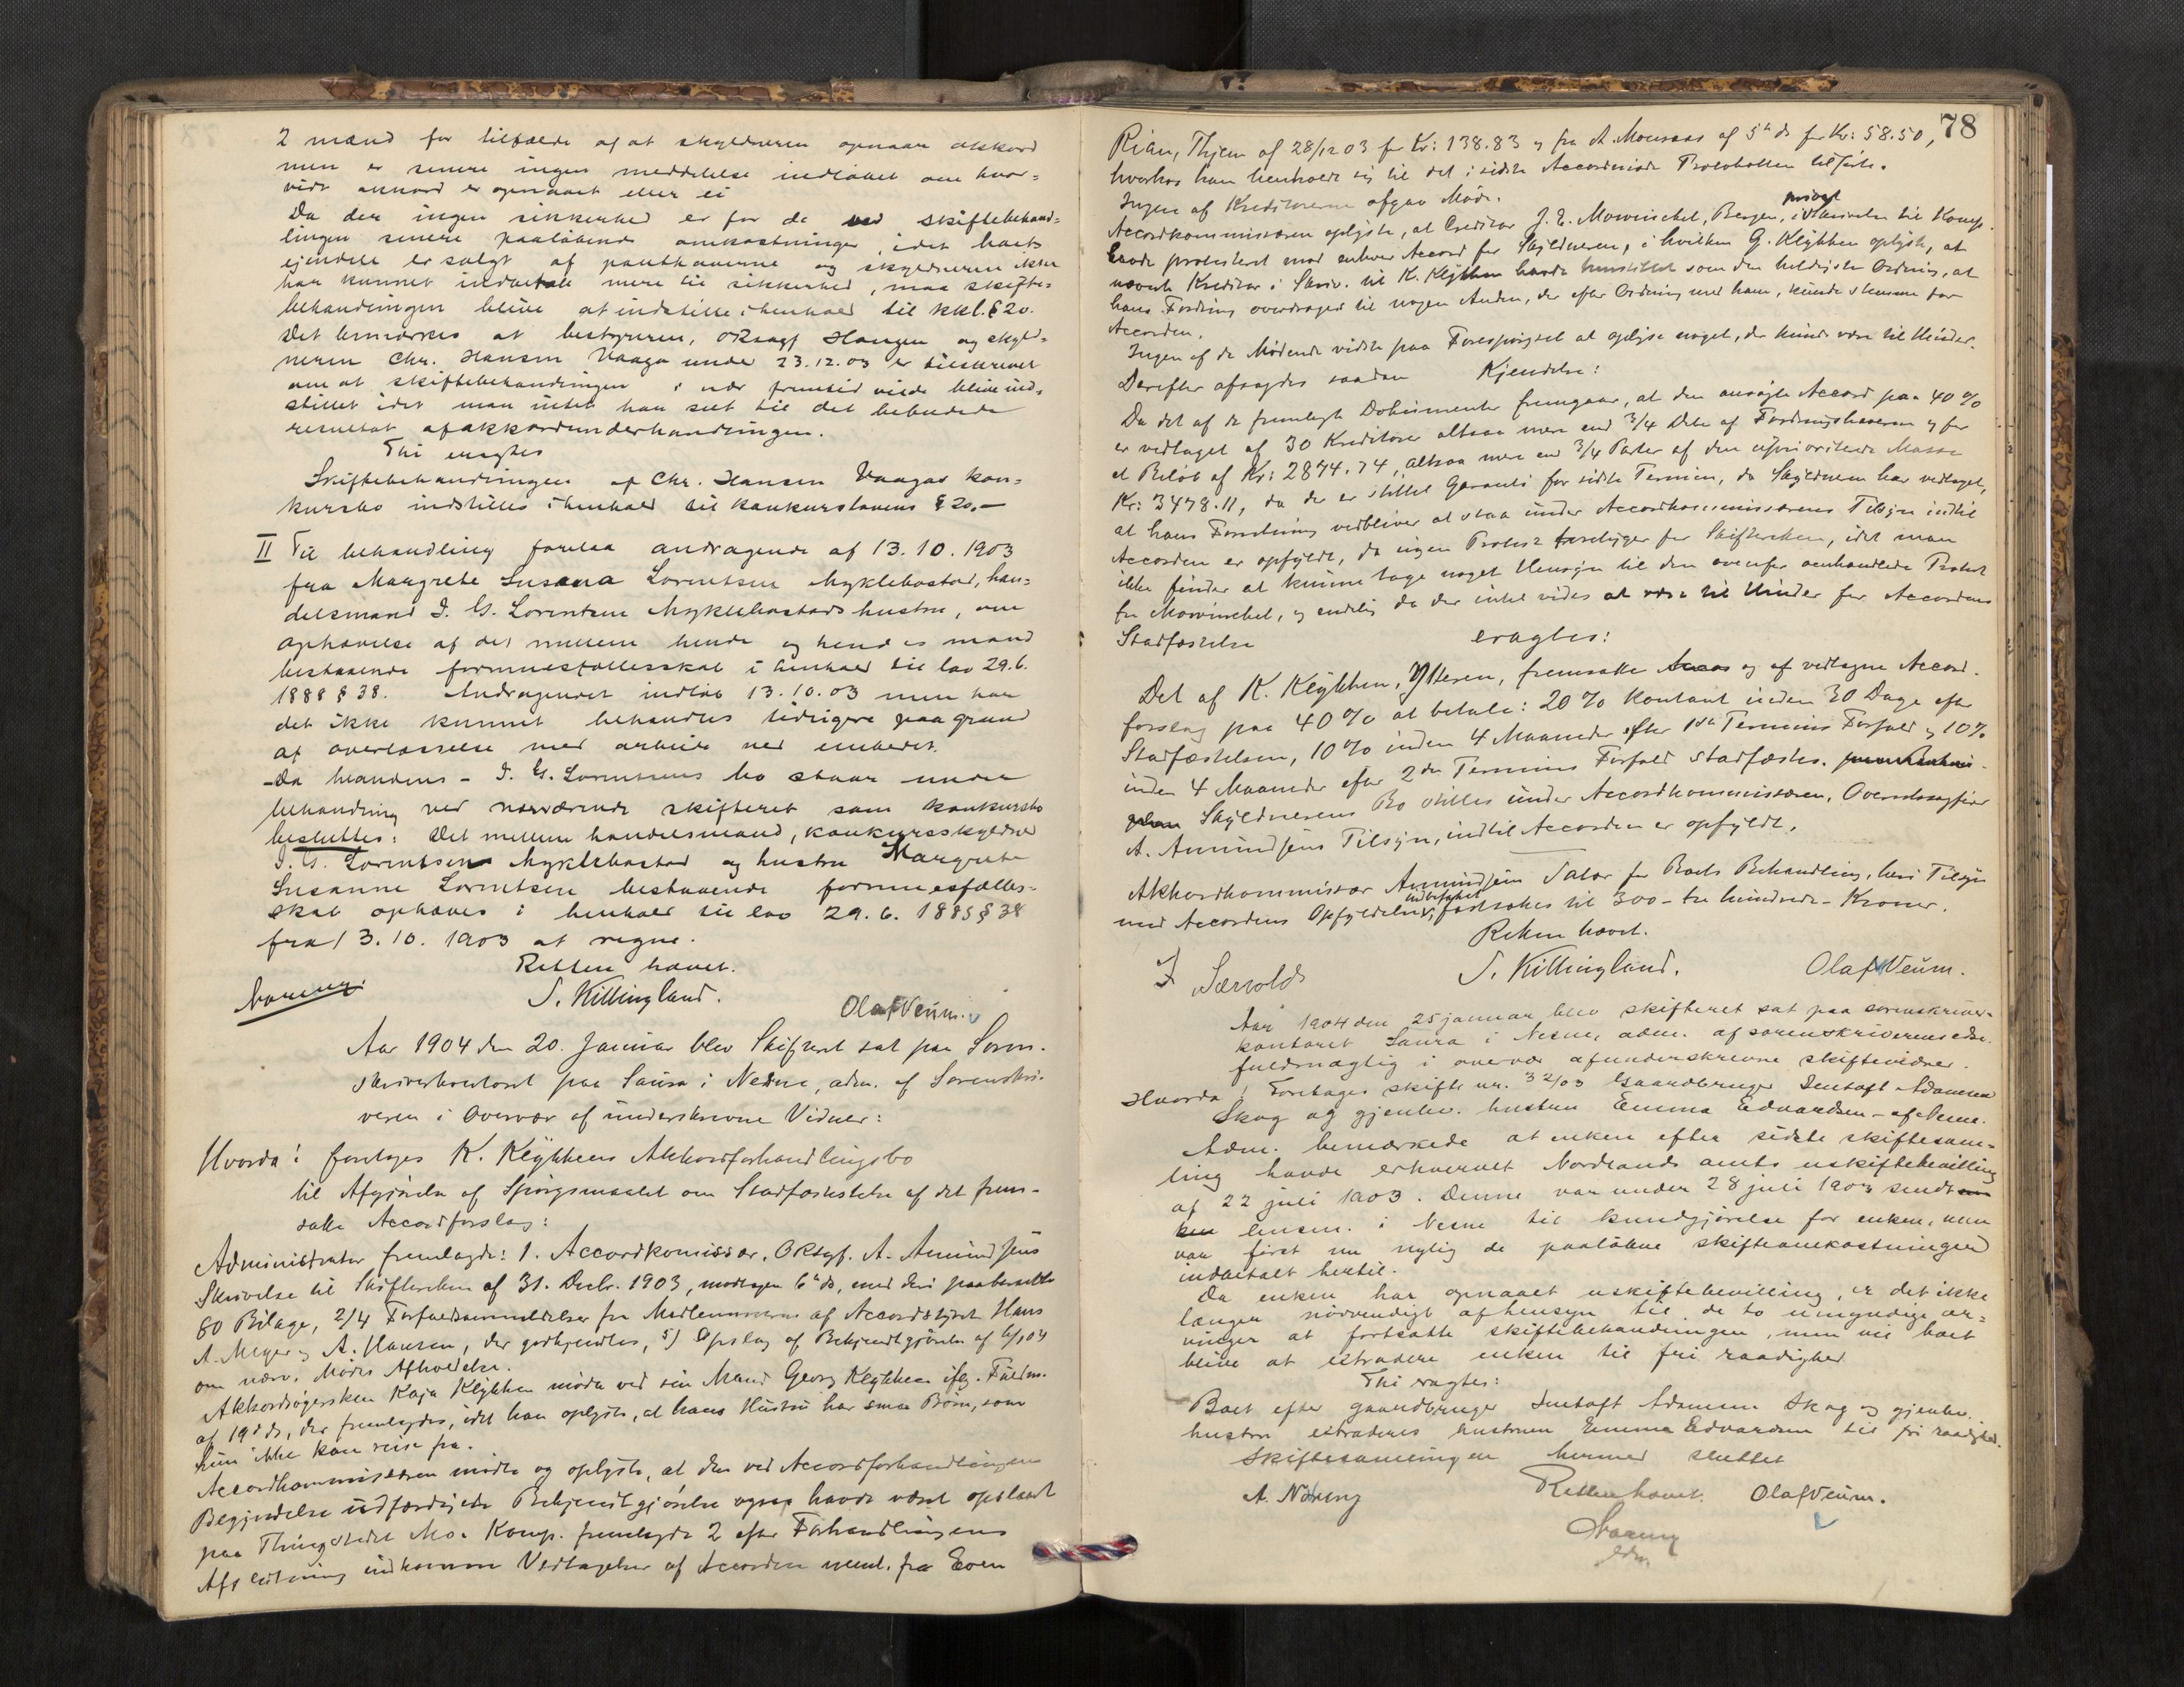 2 mænd for tilfælde af at skyldneren opnaar akkord
men er senere ingen meddelelse indløbet om hvor=
vidt akkord er opnaaet eller ei
Da der ingen sikkerhed er for de ved skiftebehand=
lingen senere paaløbende omkostninger, idet boets
ejendele er solgt af panthaverne og skyldneren ikke
har kunnet indbetale mere til sikkerhed, maa skifte=
behandlingen blive at indstille i henhold til kkl. § 20.
Det bemærkes at bestyreren, oRsagf Haugen og skyld=
neren Chr. Hansen Vaaga under 23.12.03 er tilskrevet
om at skiftebehandlingen i nær fremtid vilde blive ind=
stillet idet man intet har seet til det bebudede
resultat af akkordunderhandlingen.
Thi eragtes
Skiftebehandlingen af Chr. Hansen Vaagas kon=
kursbo indstilles i henhold til konkurslovens § 20.-
II Til behandling forelaa andragende af 13.10.1903
fra Margrete Susana Lorentsen Myklebostad, han=
delsmand I. G. Lorentsen Myklebostads hustru, om
ophævelse af det mellem hende og hendes mand
bestaaende formuesfællesskab i henhold til lov 29.6.
1888 § 38. Andragendet indløb 13.10.03 men har
det ikke kunnet behandles tidligere paa grund
af overlæsselse med arbeide ved embedet.
- Da mandens - I. G. Lorentsens bo staar under
behandling ved nærværende skifteret som konkursbo
besluttes: Det mellem handelsmand, konkursskyldner
I. G. Lorentsen Myklebostad og hustru Margrete
Susanne Lorentsen bestaaende formuesfælles-
skab ophæves i henhold til lov 29.6.1888 § 38
fra 13.10.1903 at regne.
Retten hævet.
S. Killingland.
Olaf Veum.
Aar 1904 den 20. Januar blev Skifteret sat paa Soren-
skriverkontoret paa Saura i Nesne, adm. af Sorenskri-
veren i Overvær af underskrevne Vidner:
Hvorda: foretoges K. Klykkens Akkordforhandlingsbo
til Afgjørelse af Spørgsmaalet om Stadfæstelse af det frem-
satte Accordforslag:
Administrator fremlagde: 1. Accordkomissær, ORsgf. A. Amundsens
Skrivelse til Skifteretten af 31. Decbr. 1903, modtagen 6te ds, med deri paaberaabte
60 Bilage, 2/4 Forfaldsanmeldelser fra Medlemmerne af Accordstyret Hans
A. Meyer og A. Hansen, der godkjendtes, 5) Opslag af Bekjendtgjørelse af 6/1 04
om nærv. Mødes Afholdelse.
Akkordsøgersken Kaja Klykken mødte ved sin Mand Georg Klykken ifg. Fuldm.
af 19de ds, der fremlagdes, idet han oplyste, at hans Hustru har smaa Børn, som
hun ikke kan reise fra.
Accordkommissæren mødte og oplyste, at den ved Accordforhandlingens
Begyndelse udfærdigede Bekjendtgjørelse ogsaa havde været opslaaet
paa Thingstedet Mo. Komp. fremlagde 2 efter Forhandlingens
Afslutning indkomne Vedtagelser af Accorden neml. fra Even
78
Rian, Thjem af 28/12 03 for Kr: 138.83 og fra A. Mousaas af 5te ds for Kr: 58.50,
hvorhos han henholdt sig til det i sidste Accordmøde Protokollen tilførte.
Ingen af Kreditorerne afgav Møde.
privat
Accordkommissæren oplyste, at Creditor J. E. Mowinckel, Bergen, i Skrivelse til Komp.
havde protesteret mod enhver Accord for Skyldneren, i hvilken G. Klykken oplyste, at
nævnte Kreditor i Skriv. til K. Klykken havde henstillet som den heldigste Ordning, at
hans Fordring overdroges til nogen Anden, der efter Ordning med ham, kunde stemme for
Accorden.
Ingen af de Mødende vidste paa Forespørgsel at oplyse noget, der kunde være til Hinder.
Derefter afsagdes saadan Kjendelse:
Da det af de fremlagte Dokumenter fremgaar, at den ansøgte Accord paa 40 %
er vedtaget af 30 Kreditorer altsaa mere end 3/4 Dele af Fordringshaverne og for
et Beløb af Kr: 2874.74, altsaa mere end 3/4 Parter af den uprioriterede Masse
Kr: 3478.11, da der er stillet Garanti for sidste Termin, da Skyldneren har vedtaget,
at hans Forretning vedbliver at staa under Accordkommissærens Tilsyn indtil
Accorden er opfyldt, da ingen Protest foreligger for Skifteretten, idet man
ikke finder at kunne tage noget Hensyn til den ovenfor omhandlede Protest
fra Mowinckel, og endelig da der intet vides at være til Hinder for Accordens
Stadfæstelse
eragtes:
Det af K. Klykken, Ytteren, fremsatte og af vedtagne Accord-
forslag paa 40 % at betale: 20 % kontant inden 30 Dage efter
Stadfæstelsen, 10 % inden 4 Maaneder efter 1ste Termins Forfald og 10 %
inden 4 Maaneder efter 2den Termins Forfald stadfæstes.
Skyldnerens Bo stilles under Accordkommissæren, Overretssagfører
A. Amundsens Tilsyn, indtil Accorden er opfyldt.
Akkordkommissær Amundsens Salær for Boets Behandling, heri Tilsyn
indbefattet
med Accordens Opfyldelse, fastsættes til 300 - tre hundrede - Kroner.
Retten hævet.
S. Killingland.
Olaf Veum.
Aar 1904 den 25 januar blev skifteret sat paa sorenskriver-
kontoret Saura i Nesne, adm. af sorenskriverens edsv.
fuldmægtig i overvær af underskrevne skiftevidner.
Hvorda: Foretages skifte nr. 32/03 Gaardbruger Adamsen
Skog og gjenlev. hustru Emma Edvardsen - af Nesne.
Adm. bemærkede at enken efter sidste skiftesam=
ling havde erhvervet Nordlands amts uskiftebevilling
af 22 juli 1903. Denne var under 28 juli 1903 sendt
lensm. i Nesne til kundgjørelse for enken, men
var først nu nylig de paaløbne skifteomkostninger
indbetalt hertil.
Da enken har opnaaet uskiftebevilling, er det ikke
længer nødvendigt af hensyn til de to umyndige ar=
vinger at fortsætte skiftebehandlingen, men vil boet
blive at extradere enken til fri raadighed
Thi eragtes:
Boet efter gaardbruger Adamsen Skog og gjenlev.
hustru extraderes hustruen Emma Edvardsen til fri raadighed.
Skiftesamlingen hermed sluttet
Retten hævet.
Olaf Veum.